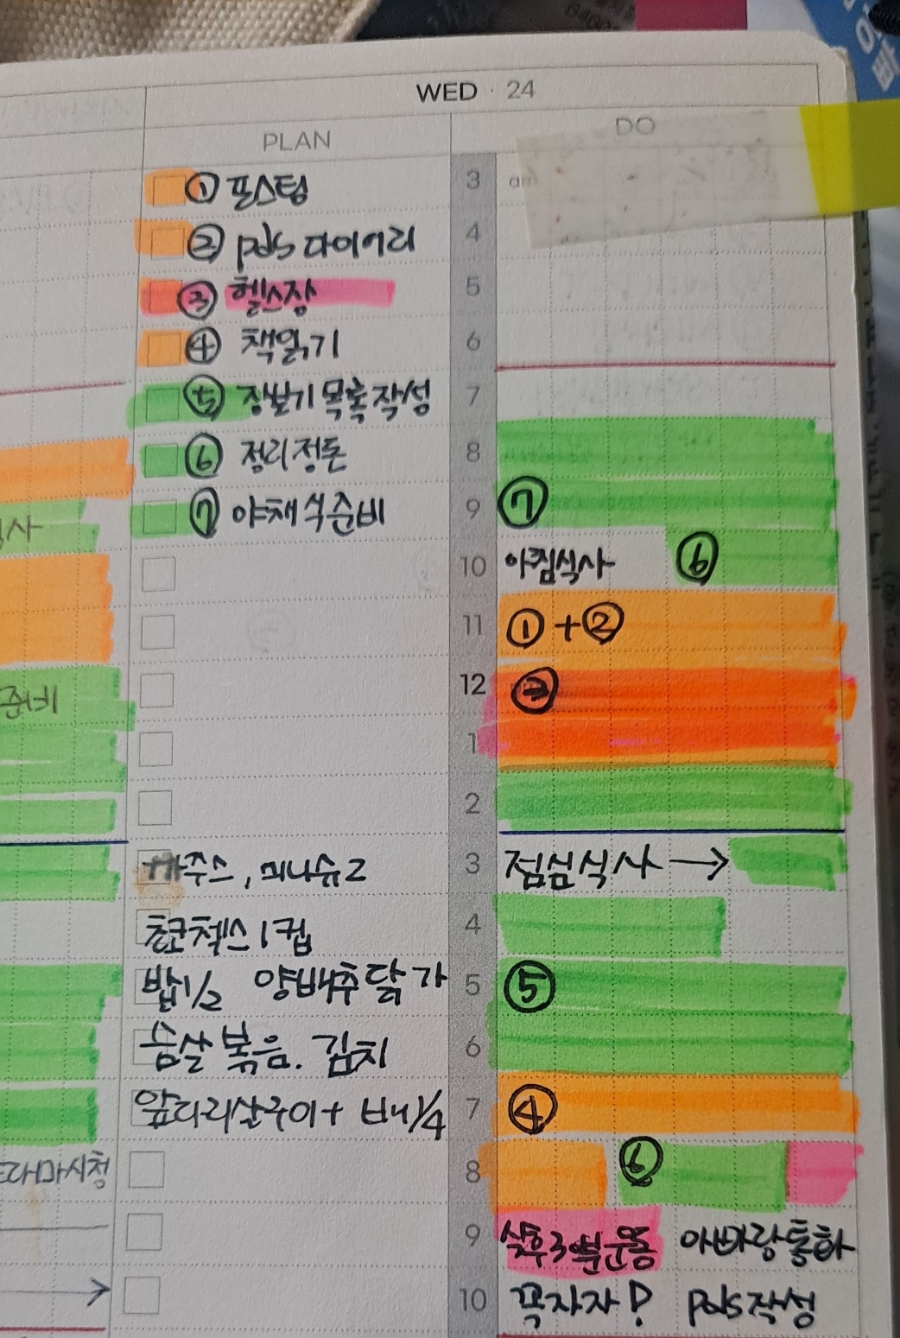 WED · 24
PLAN
DO
① 포스팅
② pds 다이어리
③ 헬스장
④ 책읽기
⑤ 장보기 목록작성
⑥ 정리정돈
⑦ 야채식준비
주스, 미나슈즈
초코첵스 1컵
밥1/2 양배추닭가
슴살볶음. 김치
앞다리살구이+ 배1/4
3 am
4
5
6
7
8
9 ⑦
10 아침식사 ⑥
11 ①+②
12 ③
1
2
3 점심식사 →
4
5 ⑤
6
7 ④
8 ⑥
9 식후 운동 아빠랑통화
10 푹자자! pds작성
사
준비
드라마시청